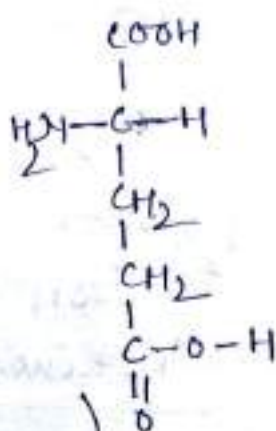 COOH
H2N-C-H
CH2
CH2
C-O-H
O